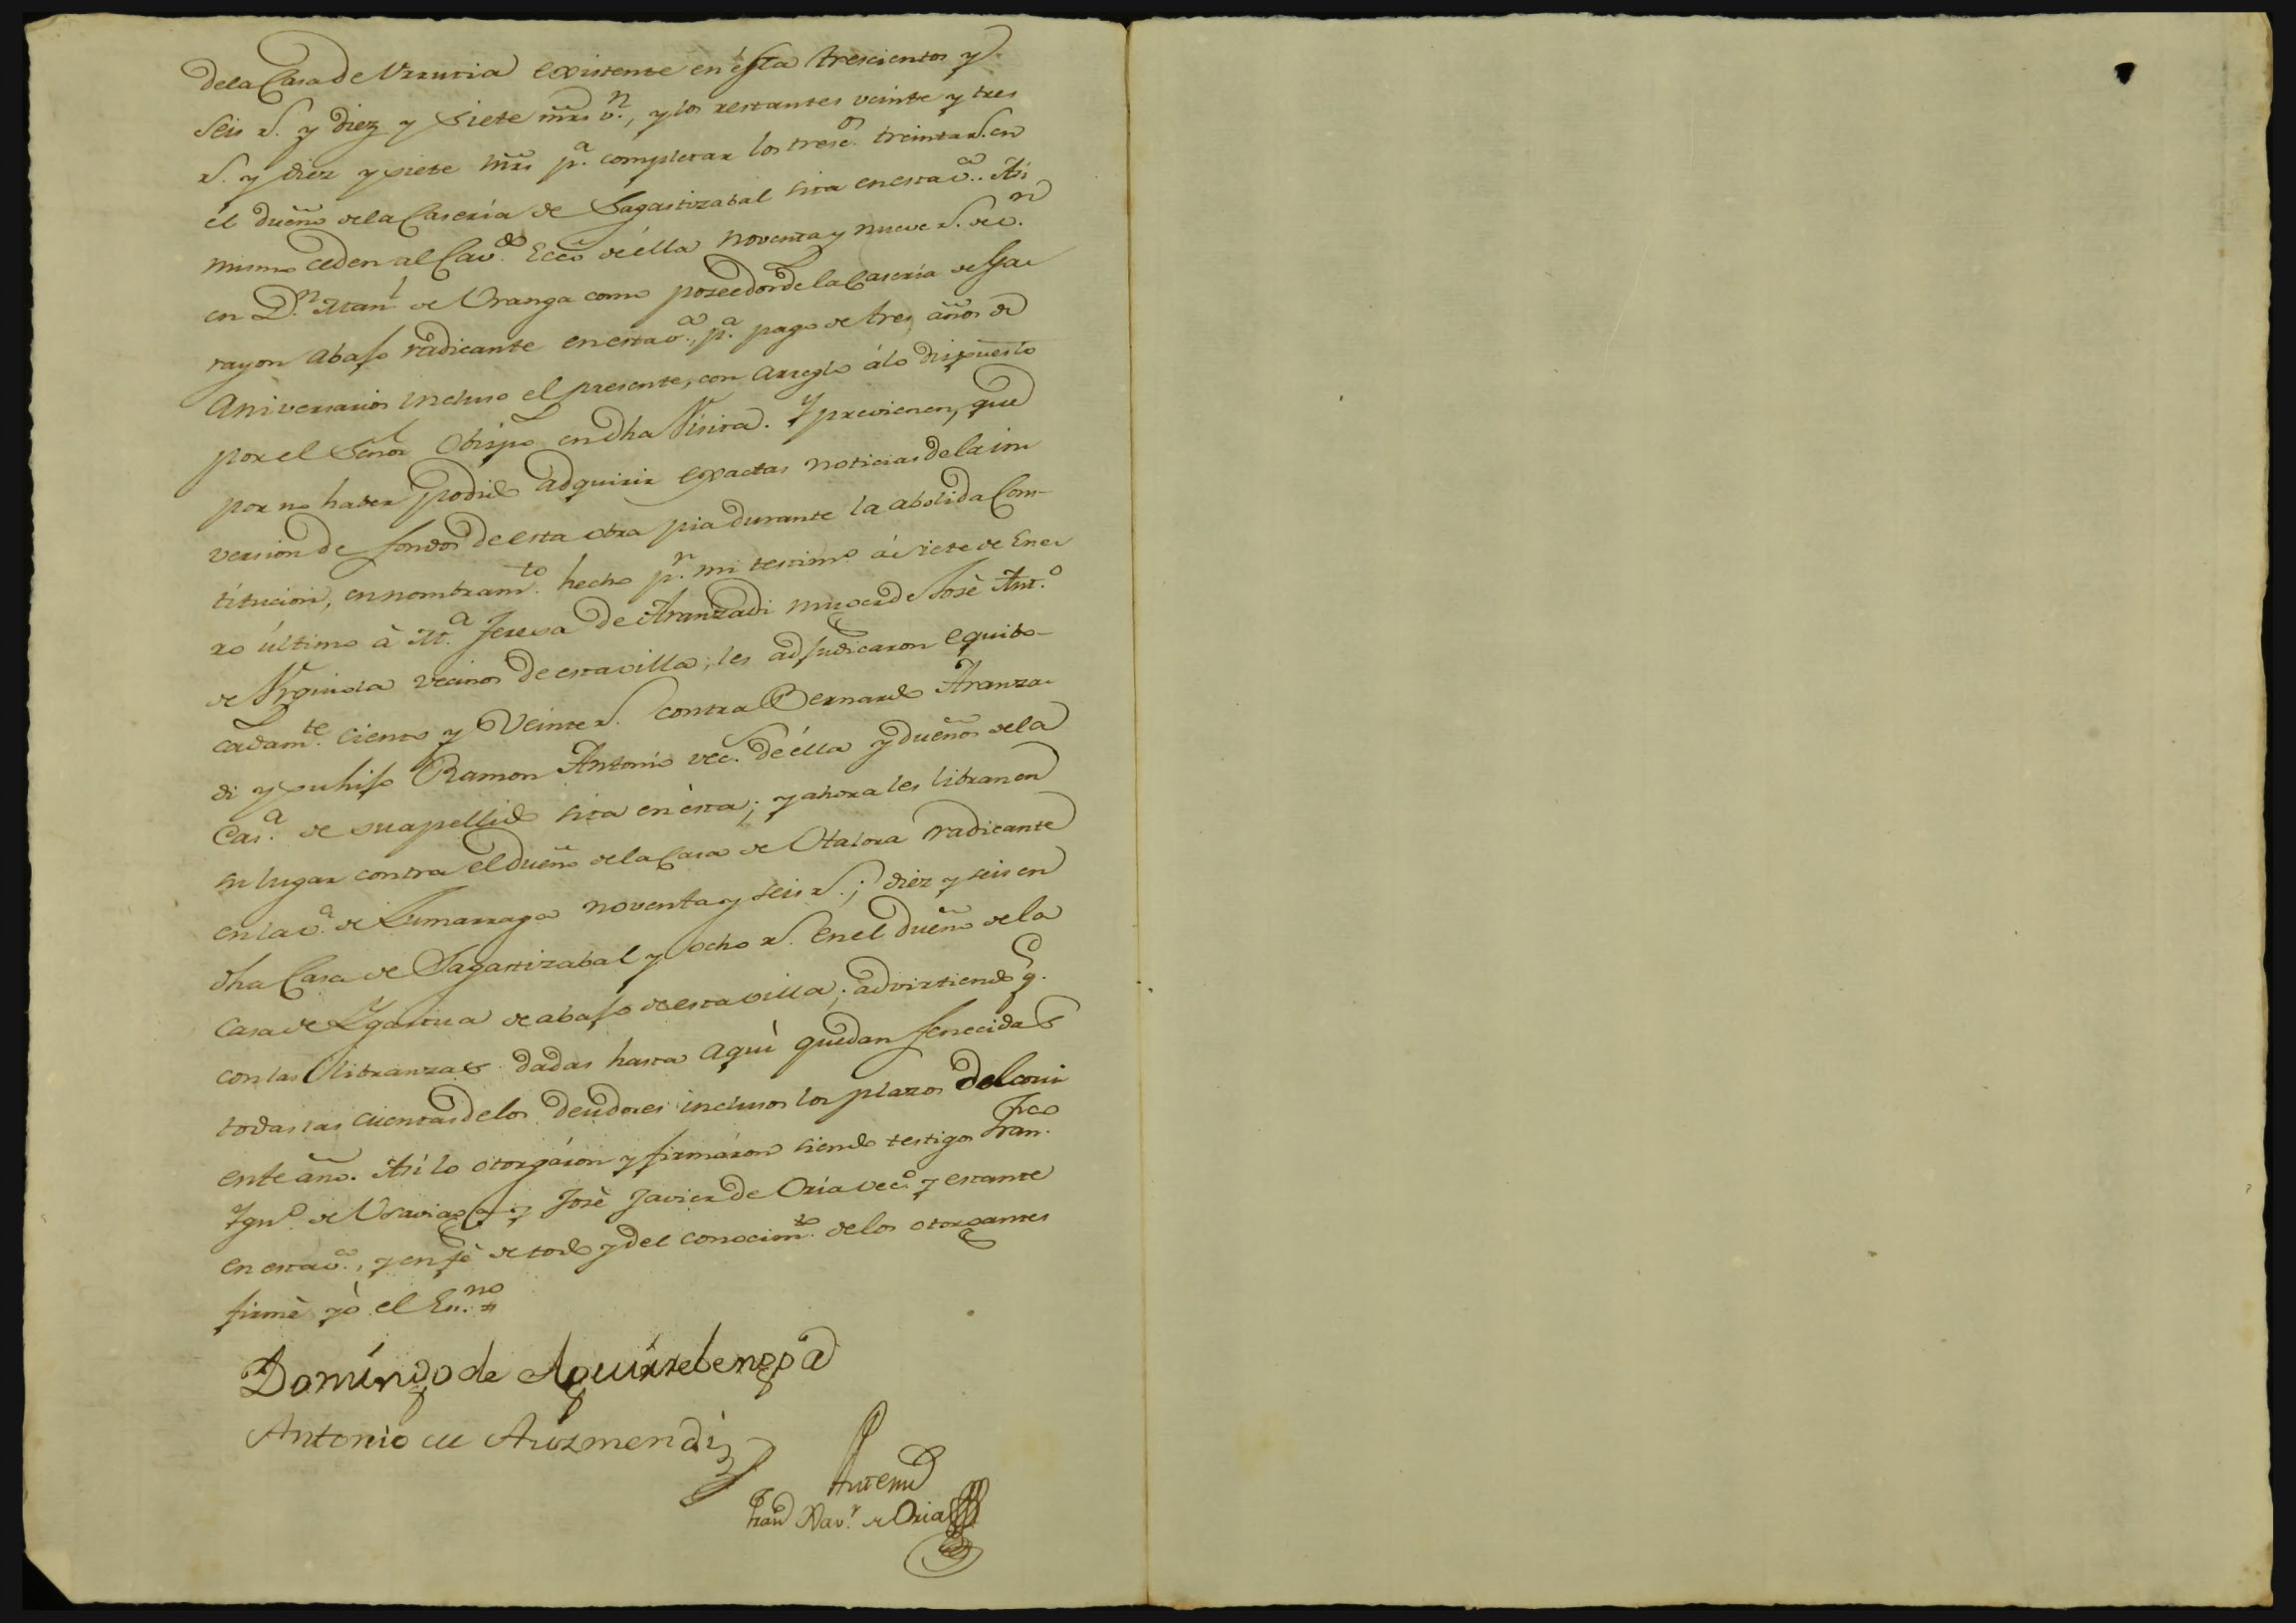 dela Casa de Urrutia existente en ésta trescientos y
seis r.s y diez y siete mrs v.n, y los restantes veinte y tres
r.s y diez y siete mrs p.a completar los tresc.os treinta r.s en
el dueño dela Caseria de Sagastizabal sita en esta v.a. Asi
mismo ceden al Cav.do Ecco de élla noventa y nueve r.s de v.n
en D.n Man.l de Uranga como poseedor de la Caseria de Ga-
rayon abajo radicante en esta v.a, p.a pago de tres años de
Aniversarios incluso el presente, con arreglo á lo dispuesto
por el Señor Obispo en dha Visita. Y previenen, que
por no haber podido adquirir exactas noticias de la in-
version de fondos de esta obra pia durante la abolida Con-
titucion, en nombram.to hecho p.r mi testim.o á siete de Ene-
ro último à M.a Teresa de Aranzadi muger de Josè Ant.o
de Urquiola vecinos de esta villa, les adjudicaron equibo-
cadam.te ciento y veinte r.s contra Bernardo Aranza-
di y su hijo Ramon Antonio vec.s de élla y dueños dela
Cas.a de su apellido sita en ésta; y ahora les libran en
su lugar contra el dueño dela Casa de Otalora radicante
en la v.a de Zumarraga noventa y seis r.s; diez y seis en
dha Casa de Sagastizabal y ocho r.s en el dueño de la
Casa de Ygartua de abajo de esta villa; advirtiendo q.e
con las libranzas dadas hasta aquì quedan fenecidas
todas las cuentas de los deudores inclusos los plazos del corri
ente año. Asi lo otorgáron y firmáron siendo testigos Fran.co
Ygn.o de Usaviaga y Josè Javier de Oria vec.o y estante
en esta v.a, y en fè de todo y del conocim.to de los otorgantes
firmè yò el Es.no
Domingo de Aguirrebengoa
Antonio de Auzmendi
Antemi
Fran Xav.r de Oria